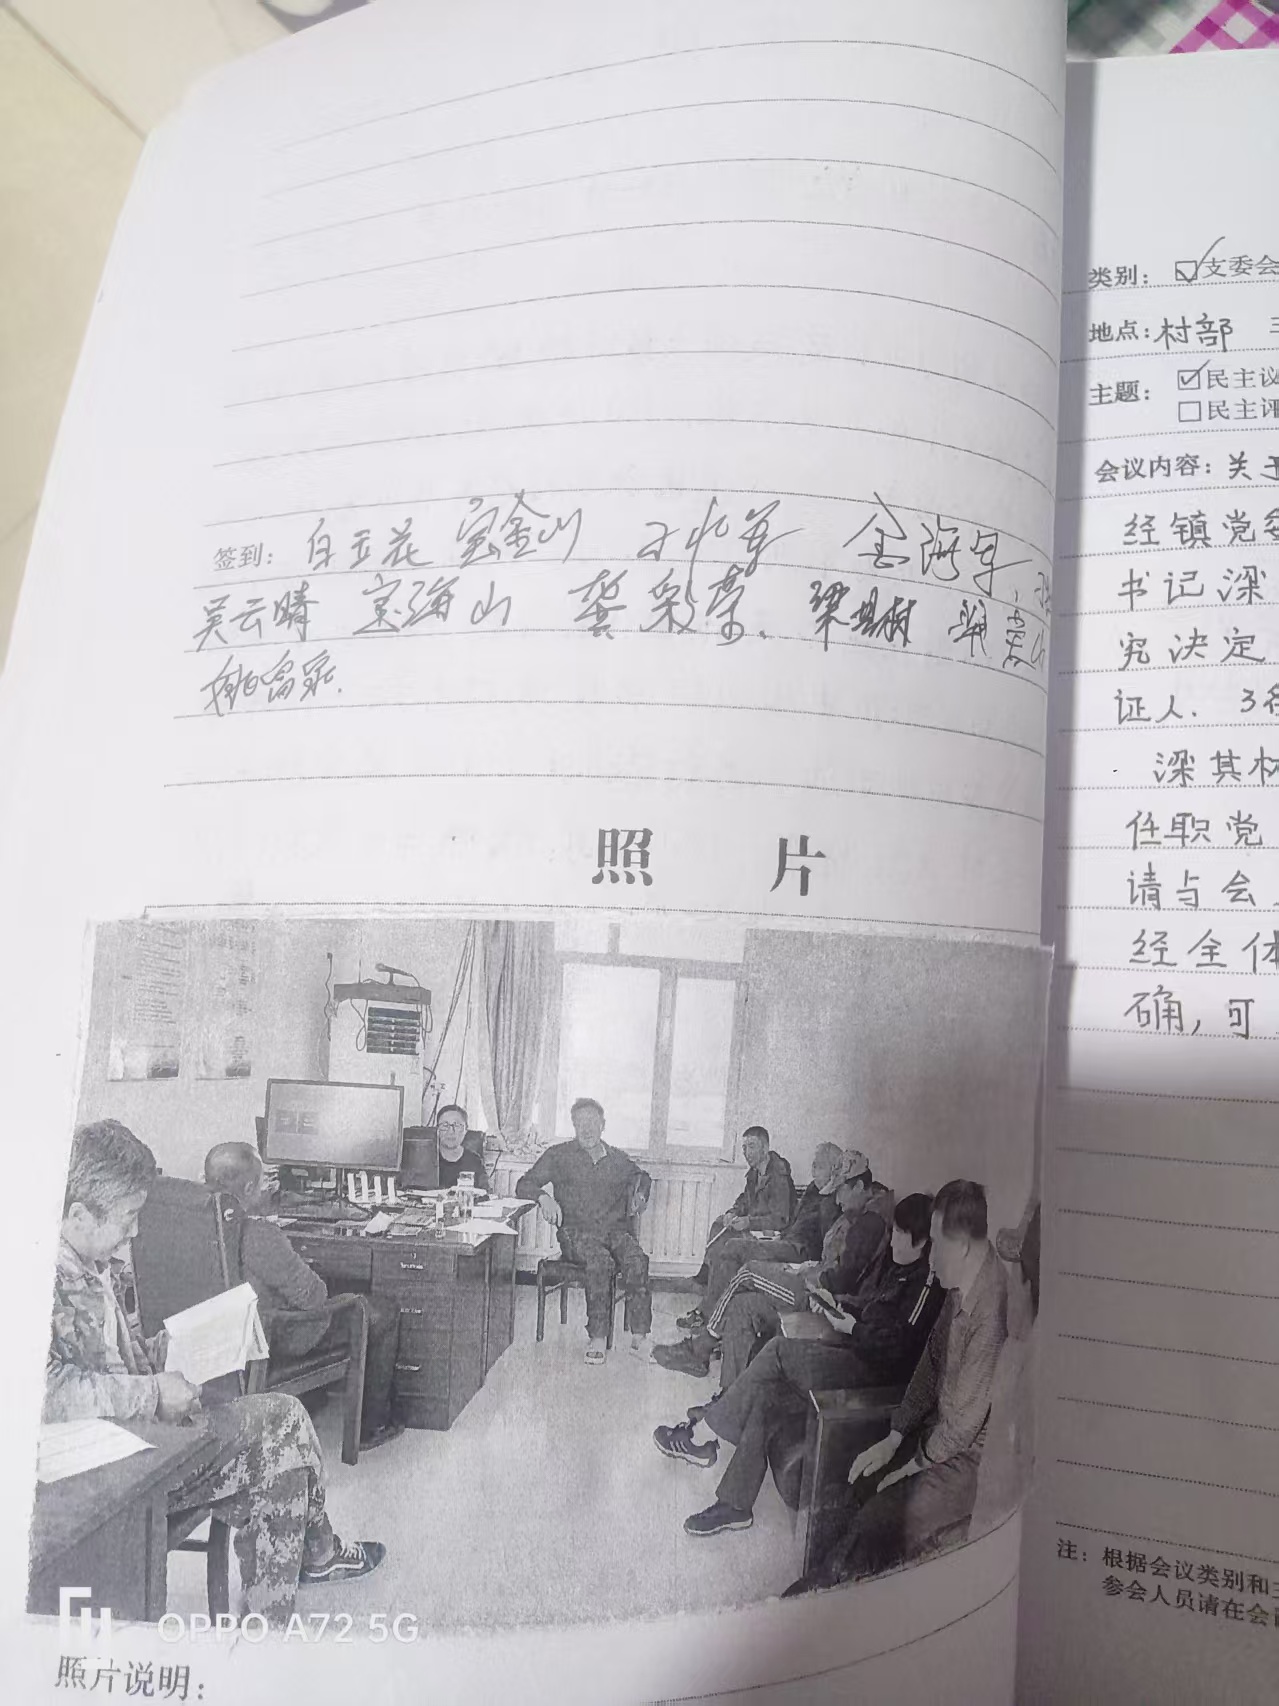 签到: 白玉花 宝金山
吴云晴 宝海山 龚彩荣、梁其树
照 片
照片说明:
OPPO A72 5G
类别: ☑支委会
地点: 村部
主题: ☑民主议
□民主评
会议内容: 关于
经镇党委
书记梁
究决定
证人. 3名
梁其林
任职党
请与会
经全体
确, 可
注: 根据会议类别和主
参会人员请在会议